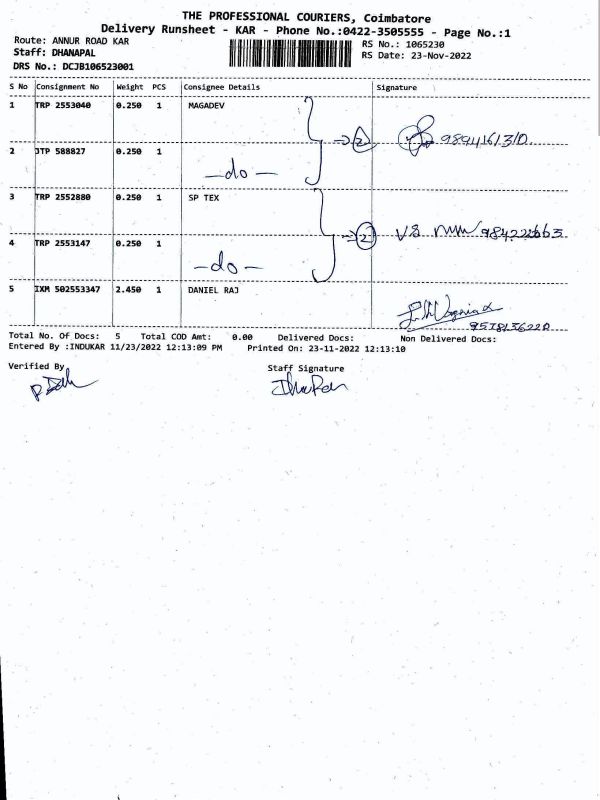 THE PROFESSIONAL COURIERS, Coimbatore
Delivery Runsheet - KAR - Phone No.:0422-3505555 - Page No.:1
Route: ANNUR ROAD KAR RS No.: 1065230
Staff: DHANAPAL RS Date: 23-Nov-2022
DRS No.: DCJB106523001
S No Consignment No Weight PCS Consignee Details Signature
1 TRP 2553040 0.250 1 MAGADEV
2
2 JTP 588827 0.250 1
-do-
3 TRP 2552880 0.250 1 SP TEX
2
4 TRP 2553147 0.250 1
-do-
5 IXM 502553347 2.450 1 DANIEL RAJ
Total No. Of Docs: 5 Total COD Amt: 0.00 Delivered Docs: Non Delivered Docs:
Entered By :INDUKAR 11/23/2022 12:13:09 PM Printed On: 23-11-2022 12:13:10
Verified By Staff Signature